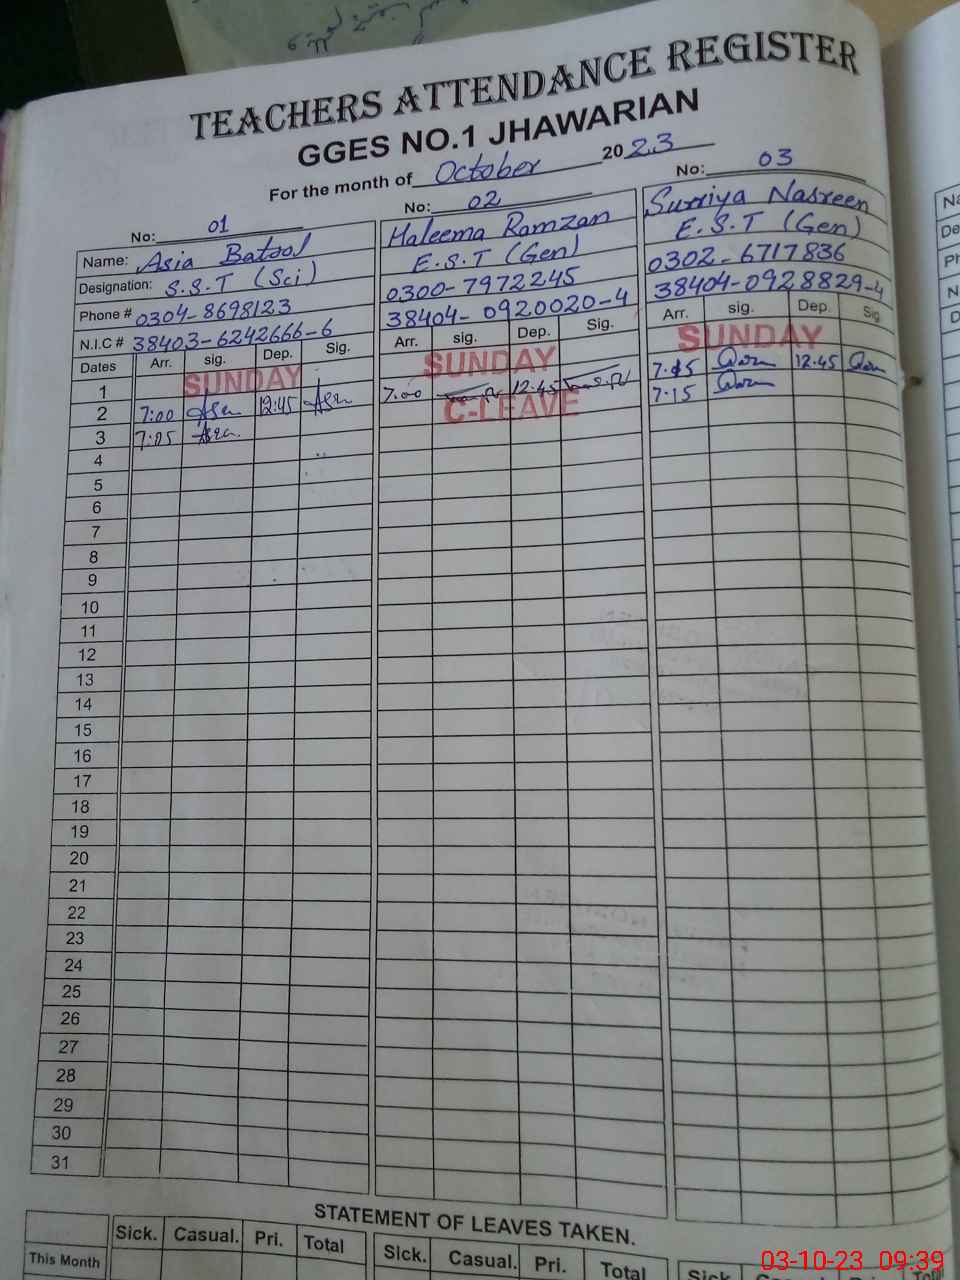 TEACHERS ATTENDANCE REGISTER
GGES NO.1 JHAWARIAN
For the month of October 2023
No: 01 No: 02 No: 03
Name: Asia Batool Haleema Ramzan Sumiya Nasreen
Designation: S.S.T (Sci) E.S.T (Gen) E.S.T (Gen)
Phone # 0304-8698123 0300-7972245 0302-6717836
N.I.C # 38403-6242666-6 38404-0920020-4 38404-0928829-4
Dates Arr. sig. Dep. Sig. Arr. sig. Dep. Sig. Arr. sig. Dep. Sig
1 SUNDAY SUNDAY SUNDAY
2 7:00 12:45 7:00 12:45 12:45
3 7:05 C-LEAVE 7.15
4
5
6
7
8
9
10
11
12
13
14
15
16
17
18
19
20
21
22
23
24
25
26
27
28
29
30
31
STATEMENT OF LEAVES TAKEN.
Sick. Casual. Pri. Total Sick. Casual. Pri. Total Sick Casual Pri. Total
This Month
03-10-23 09:39